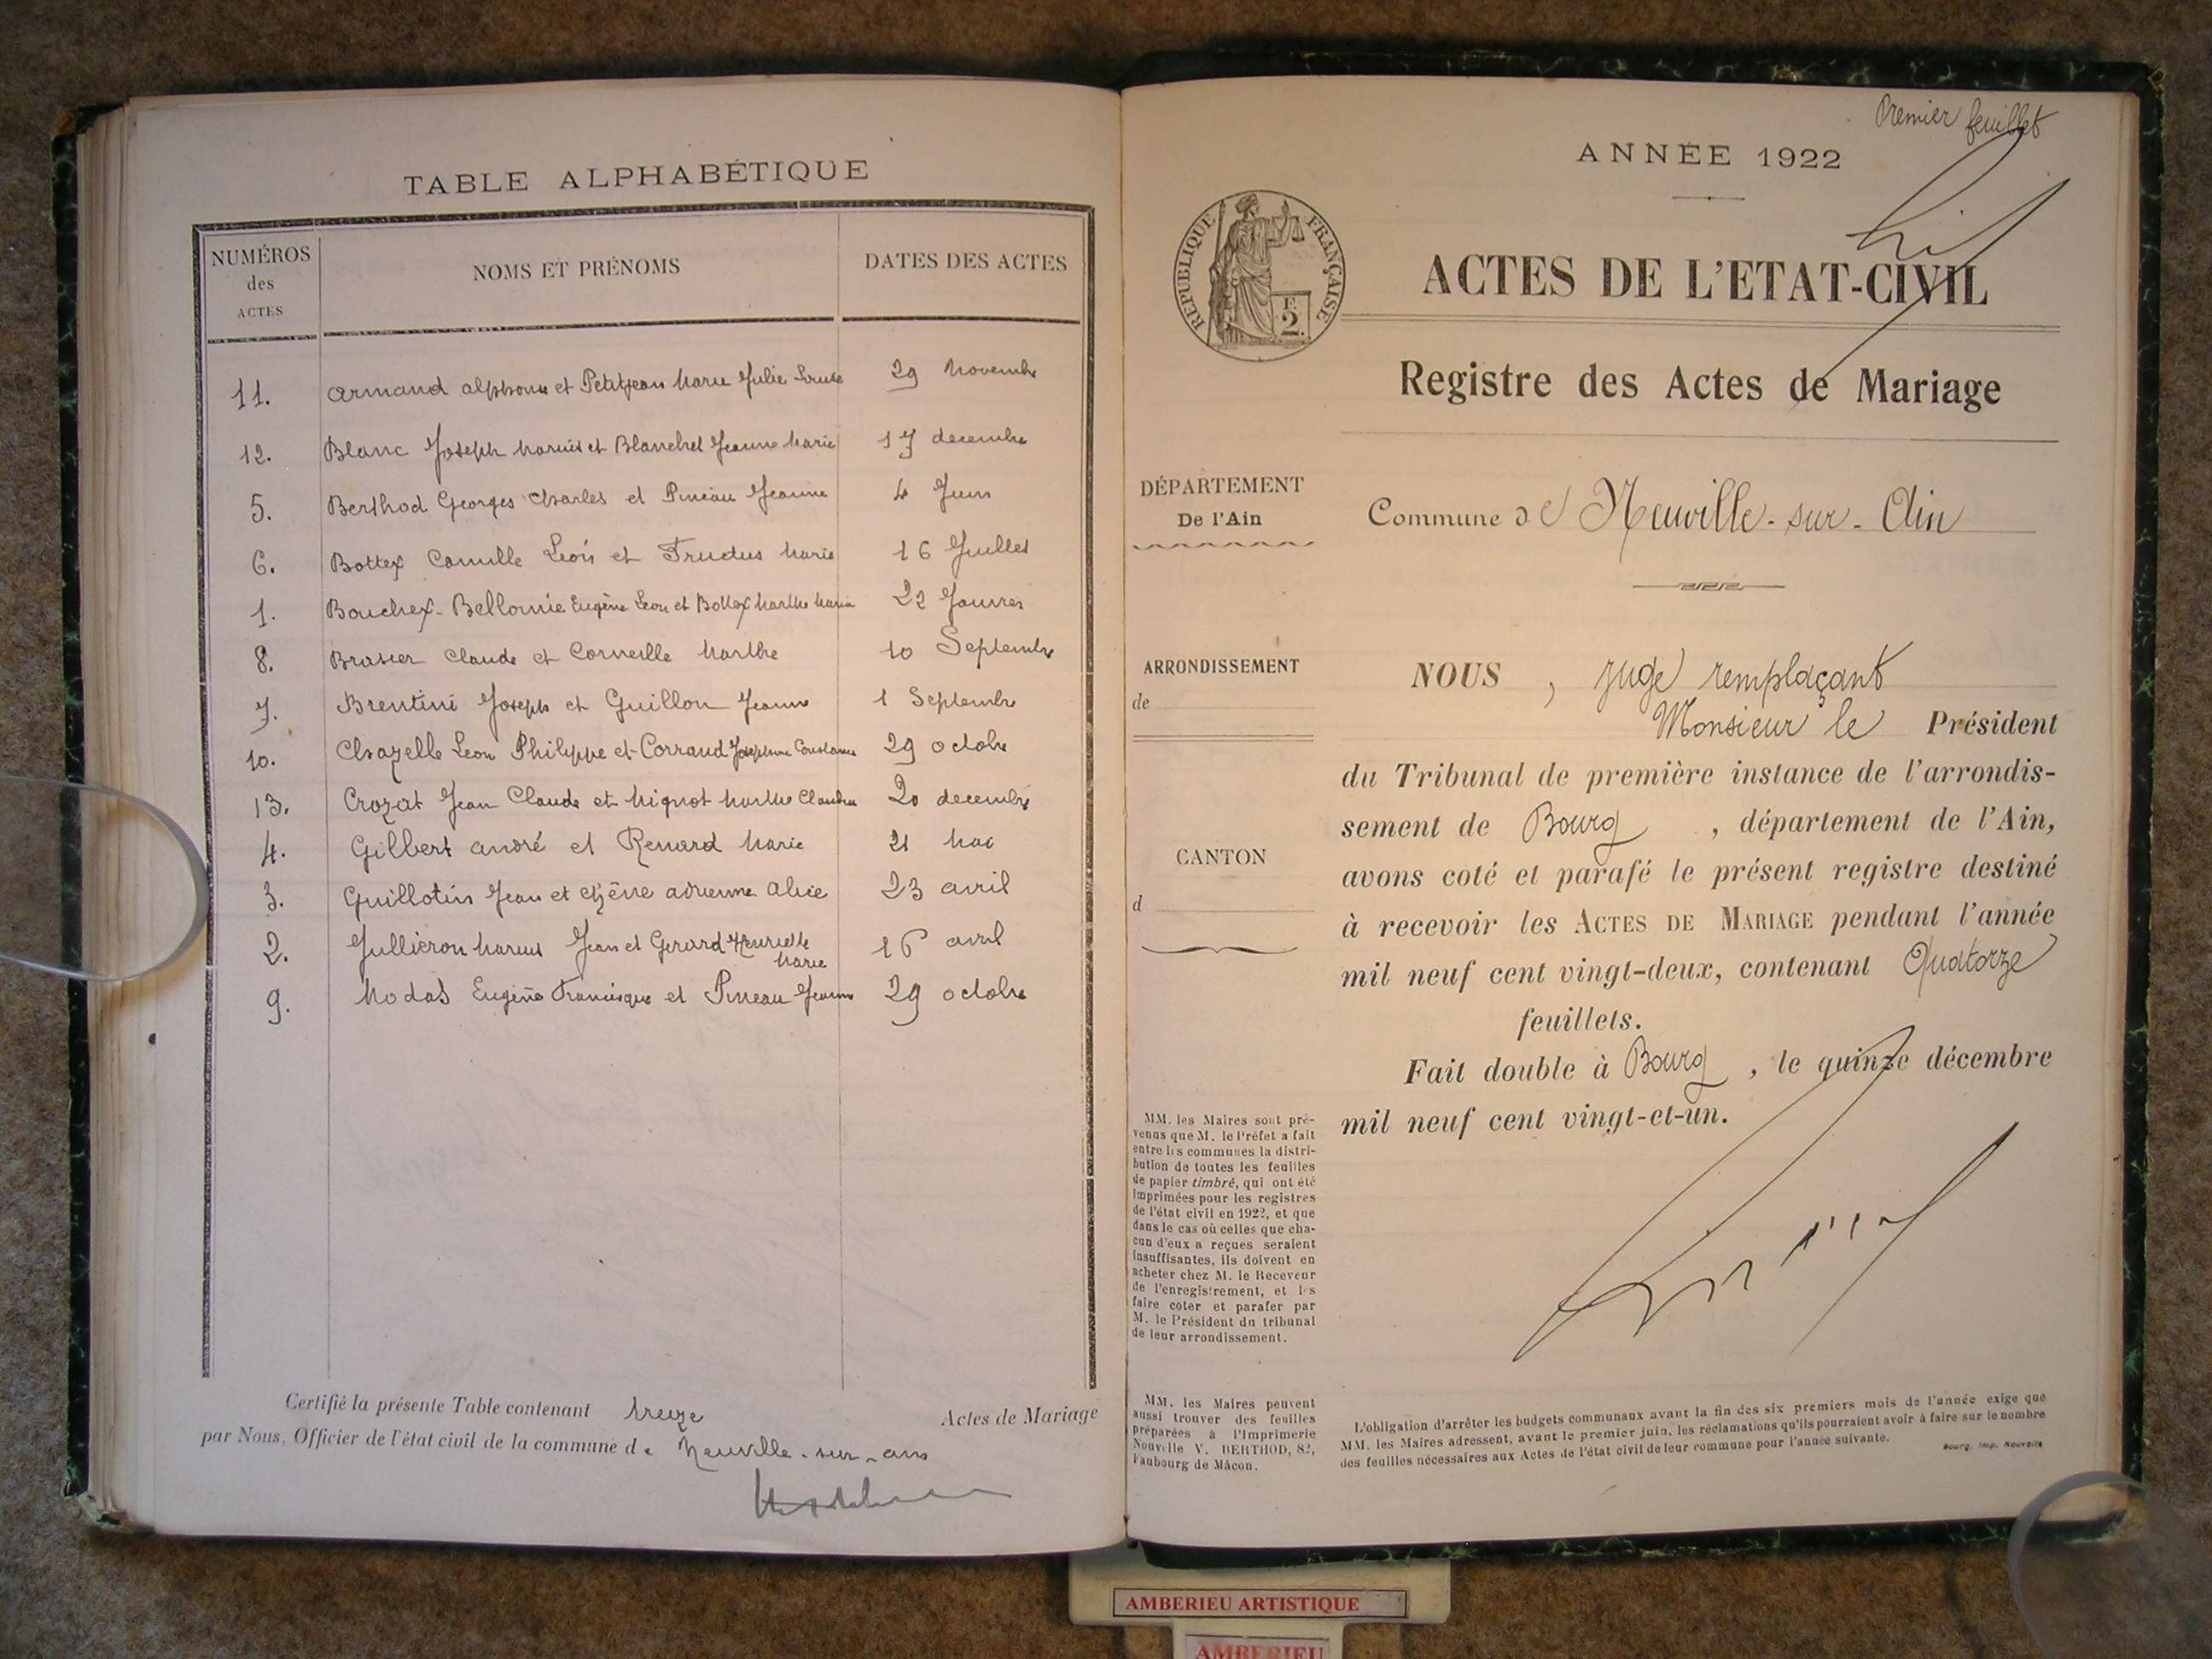 TABLE ALPHABÉTIQUE
NUMÉROS des ACTES NOMS ET PRÉNOMS DATES DES ACTES
11. Armand alphonse et Petitjean Marie Julie Louise 29 Novembre
12. Blanc Joseph Marius et Blanchet Jeanne Marie 17 decembre
5. Berthod Georges Charles et Pineau Jeanne 4 Juin
6. Bottex Camille Léon et Fructus Marie 16 Juillet
1. Bouchex-Bellomie Eugène Leon et Bottex Marthe Maria 22 Janvier
8. Brasier Claude et Corneille Marthe 10 Septembre
7. Brentini Joseph et Guillon Jeanne 1 Septembre
10. Chazelle Leon Philippe et Corraud Josephine Constance 29 octobre
13. Crozat Jean Claude et Mignot Marthe Claudia 20 decembre
4. Gilbert andré et Renard Marie 21 Mai
3. Guillotin Jean et Chêne adrienne alice 23 avril
2. Jullieron Marius Jean et Gerard Henriette Marie 16 avril
9. Modas Eugène Francisque et Pineau Jeanne 29 octobre
Certifié la présente Table contenant treize Actes de Mariage
par Nous, Officier de l'état civil de la commune de Neuville-sur-ain
Premier feuillet
ANNÉE 1922
RÉPUBLIQUE FRANÇAISE
F.
2.
ACTES DE L'ETAT-CIVIL
Registre des Actes de Mariage
DÉPARTEMENT
De l'Ain
Commune de Neuville-sur-Ain
ARRONDISSEMENT
de
CANTON
d
NOUS, juge remplaçant
Monsieur le Président
du Tribunal de première instance de l'arrondis-
sement de Bourg, département de l'Ain,
avons coté et parafé le présent registre destiné
à recevoir les ACTES DE MARIAGE pendant l'année
mil neuf cent vingt-deux, contenant Quatorze
feuillets.
Fait double à Bourg, le quinze décembre
mil neuf cent vingt-et-un.
MM. les Maires sont pré-
venus que M. le Préfet a fait
entre les communes la distri-
bution de toutes les feuilles
de papier timbré, qui ont été
imprimées pour les registres
de l'état civil en 1922, et que
dans le cas où celles que cha-
cun d'eux a reçues seraient
insuffisantes, ils doivent en
acheter chez M. le Receveur
de l'enregistrement, et les
faire coter et parafer par
M. le Président du tribunal
de leur arrondissement.
MM. les Maires peuvent
aussi trouver des feuilles
préparées à l'Imprimerie
Nouvelle V. BERTHOD, 82,
Faubourg de Mâcon.
L'obligation d'arrêter les budgets communaux avant la fin des six premiers mois de l'année exige que
MM. les Maires adressent, avant le premier juin, les réclamations qu'ils pourraient avoir à faire sur le nombre
des feuilles nécessaires aux Actes de l'état civil de leur commune pour l'année suivante.
Bourg, Imp. Nouvelle
AMBERIEU ARTISTIQUE
AMBERIEU